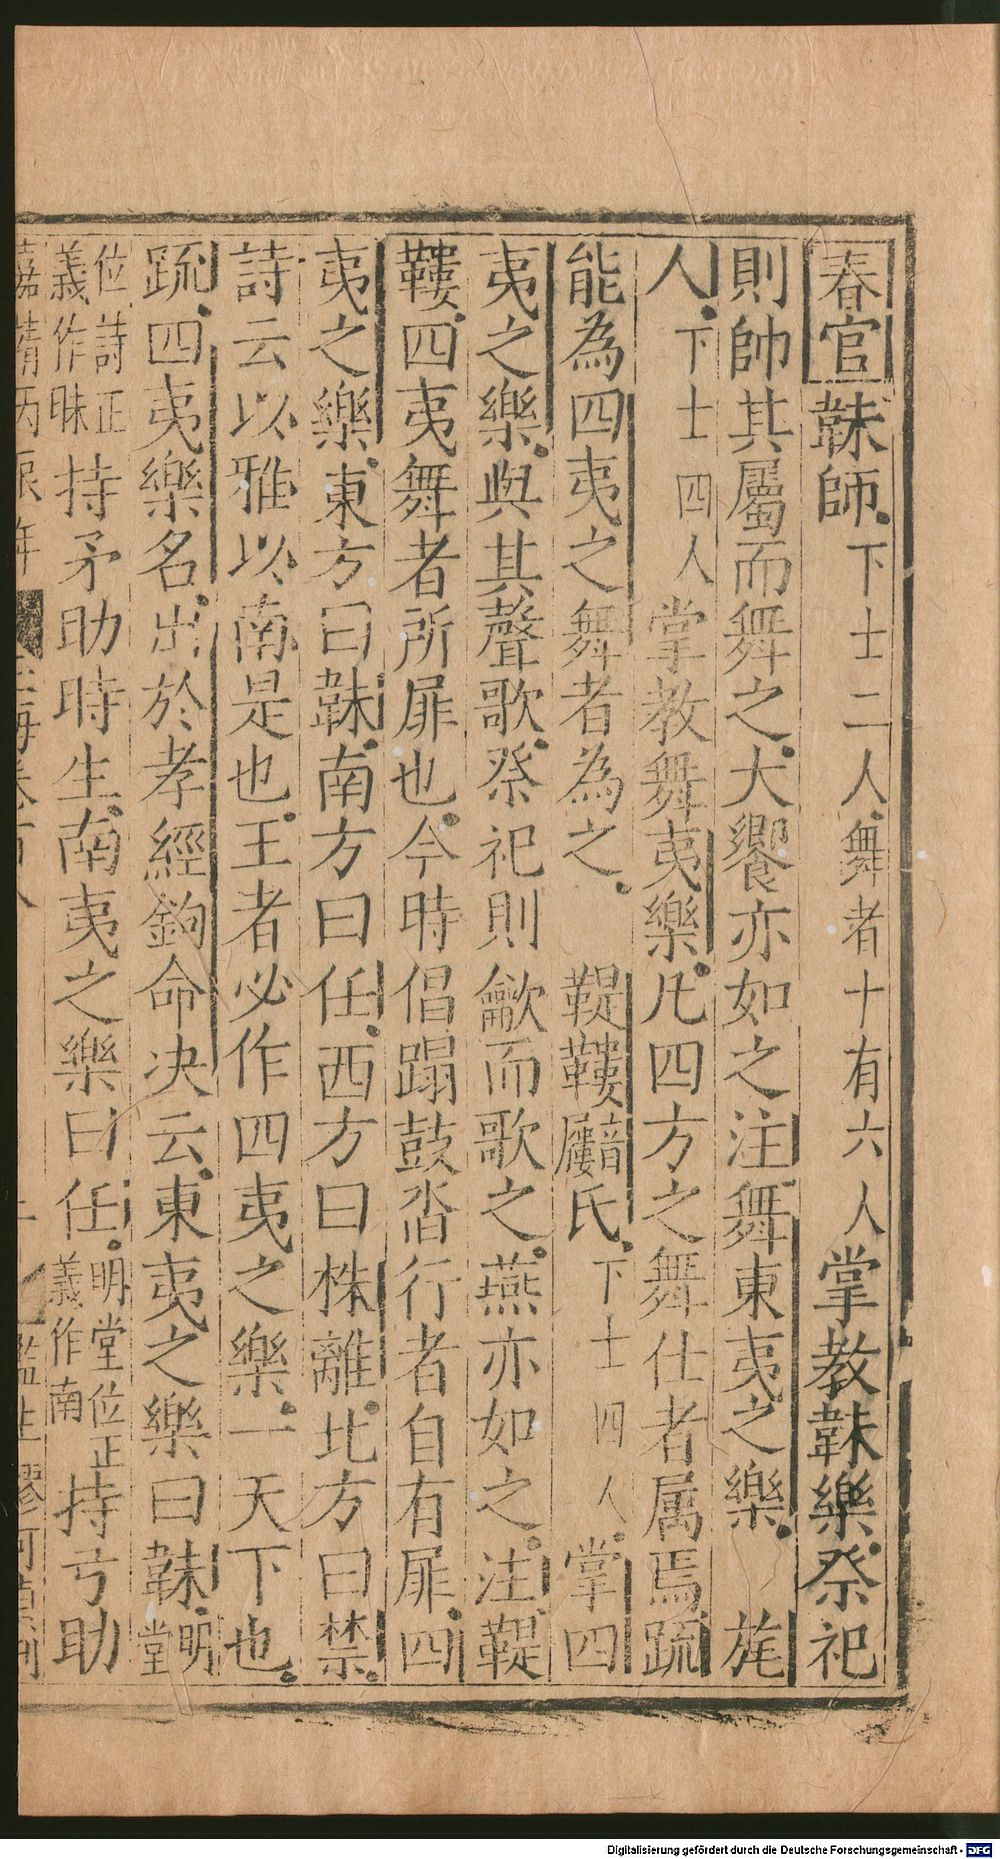 春官韎師下士二人舞者十有六人掌教韎樂祭祀
則帥其屬而舞之大饗亦如之注舞東夷之樂　旄
人下士四人掌教舞夷樂凡四方之舞仕者属焉䟽
能為四夷之舞者為之　鞮鞻音屨氏下士四人掌四
夷之樂與其聲歌祭祀則龡而歌之燕亦如之注鞮
鞻四夷舞者所屝也今時倡蹋鼓沓行者自有屝四
夷之樂東方曰韎南方曰任西方曰株離北方曰禁
詩云以雅以南是也王者必作四夷之樂一天下也
䟽四夷樂名出於孝經鉤命决云東夷之樂曰韎明堂
位詩正義作昧持矛助時生南夷之樂曰任明堂位正義作南持弓助
嘉靖丙辰年 玉海卷百八 監生廖
Digitalisierung gefördert durch die Deutsche Forschungsgemeinschaft - DFG